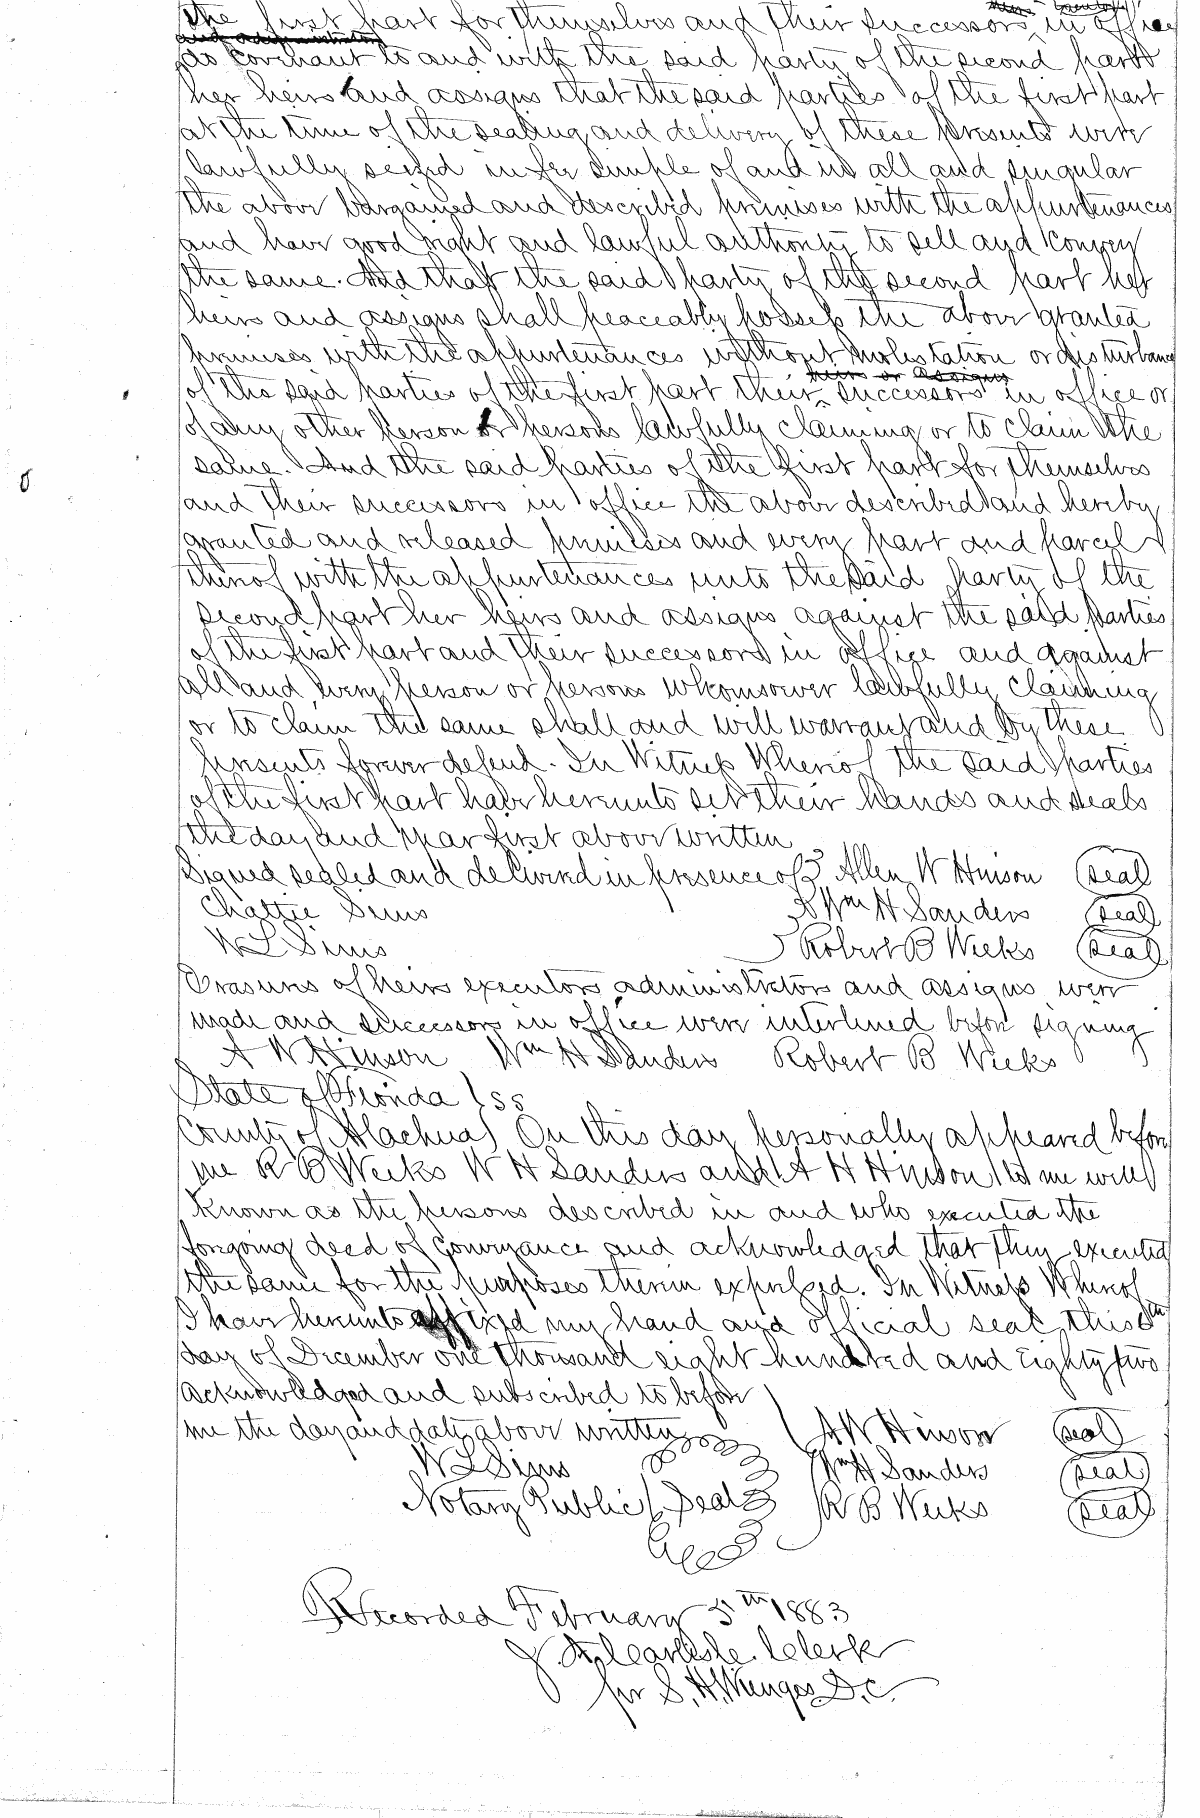 the first part for themselves and their successors in office
as covenant to and with the said party of the second part
her heirs and assigns that the said parties of the first part
at the time of the sealing and delivery of these presents were
lawfully seized in fee simple of and in all and singular
the above bargained and described premises with the appurtenances
and have good right and lawful authority to sell and convey
the same. And that the said party of the second part her
heirs and assigns shall peaceably possess the above granted
premises with the appurtenances without molestation or disturbance
heirs or assigns
of the said parties of the first part their successors in office or
of any other person or persons lawfully claiming or to claim the
same. And the said parties of the first part for themselves
and their successors in office the above described and hereby
granted and released premises and every part and parcel
thereof with the appurtenances unto the said party of the
second part her heirs and assigns against the said parties
of the first part and their successors in office and against
all and every person or persons whomsoever lawfully claiming
or to claim the same shall and will warrant and by these
presents forever defend. In Witness Whereof the said parties
of the first part have hereunto set their hands and seals
the day and year first above written
Signed sealed and delivered in presence of Allen W Hinson (seal)
Chattie Sims Wm H Sanders (seal)
W L Sims Robert B Weeks (seal)
Erasures of heirs executors administrators and assigns were
made and successors in office were interlined before signing
A W Hinson Wm H Sanders Robert B Weeks
State of Florida ) ss
County of Alachua ) On this day personally appeared before
me R B Weeks W H Sanders and A H Hinson to me well
known as the persons described in and who executed the
foregoing deed of conveyance and acknowledged that they executed
the same for the purposes therein expressed. In Witness Whereof
I have hereunto affixed my hand and official seal this 6th
day of December one thousand eight hundred and Eighty two
acknowledged and subscribed to before
me the day and date above written A W Hinson (seal)
W L Sims Wm H Sanders (seal)
Notary Public (Seal) R B Weeks (seal)
Recorded February 5th 1883
J. A. Carlisle. Clerk
per S. H. Wienges D.C.